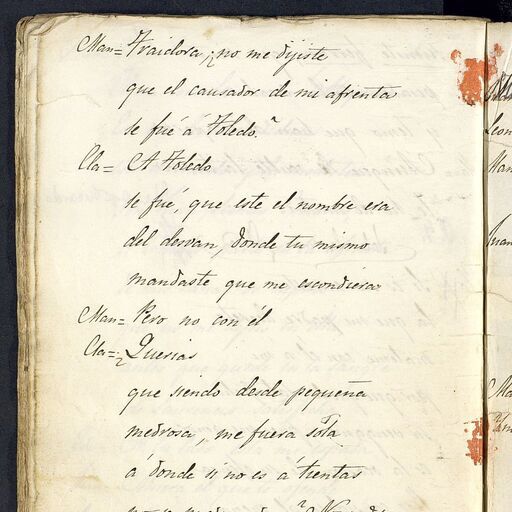 Man= Traidora, ¿no me dijiste
que el causador de mi afrenta
se fué á Toledo?
Cla= A Toledo
se fué, que este el nombre era
del desvan, donde tu mismo
mandaste que me escondiera
Man= Pero no con él
Cla= ¿Querias
que siendo desde pequeña
medrosa, me fuera sola
á donde si no es á tientas
Leon
Man
Juan